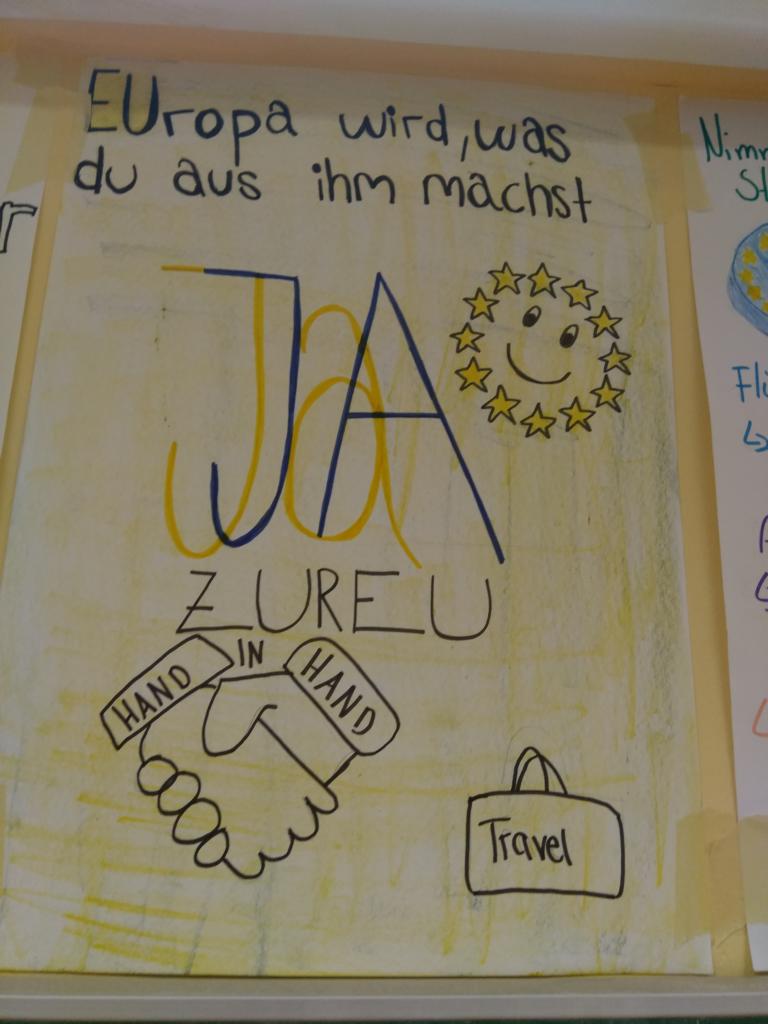 EUropa wird, was
du aus ihm machst
JA
Ja
ZUR EU
HAND IN HAND
Travel